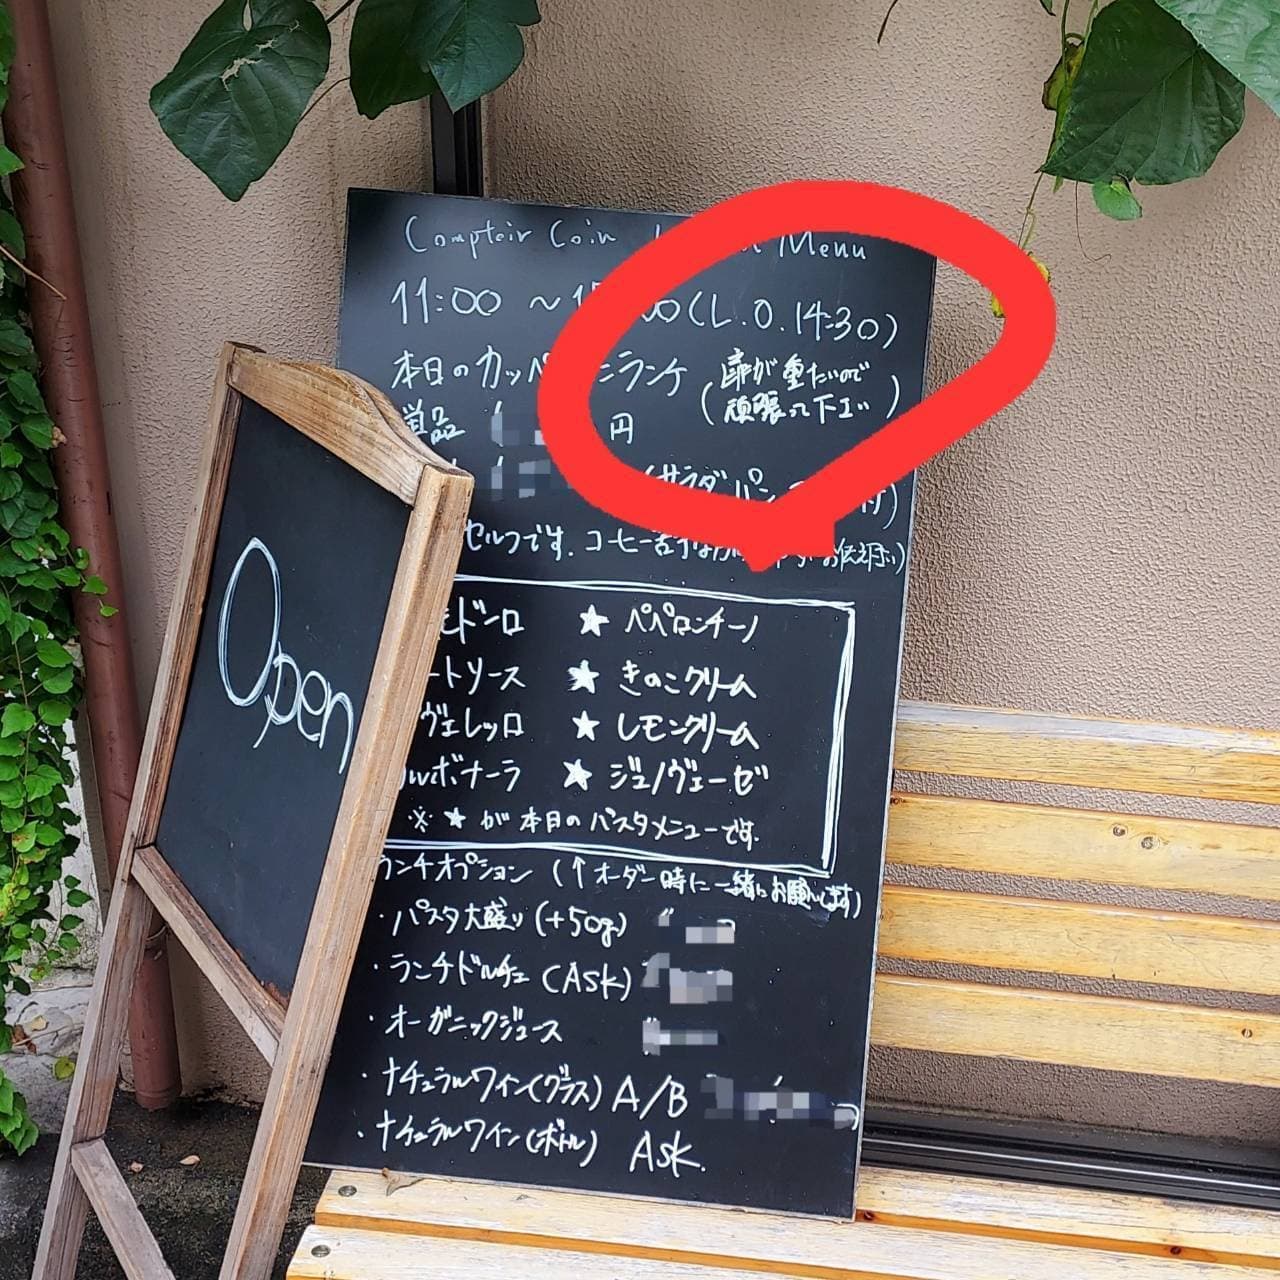 Comptoir Coin Menu
11:00 ~ (L.O.14:30)
本日のカッペ ランケ (扉が重たいので
頑張って下さい)
単品 円
(サラダ パン 付)
セルフです. コーヒー苦手な お伝え下さい)
ドンロ ★ ペペロンチーノ
ートソース ★ きのこクリーム
ヴェレッロ ★ レモンクリーム
ルボナーラ ★ ジェノヴェーゼ
※ ★ が 本日の パスタメニューです.
ランチオプション (↑オーダー時に一緒にお願いします)
・パスタ大盛り (+50g)
・ランチドルチェ (ASK)
・オーガニックジュース
・ナチュラルワイン(グラス) A/B
・ナチュラルワイン(ボトル) Ask.
Open